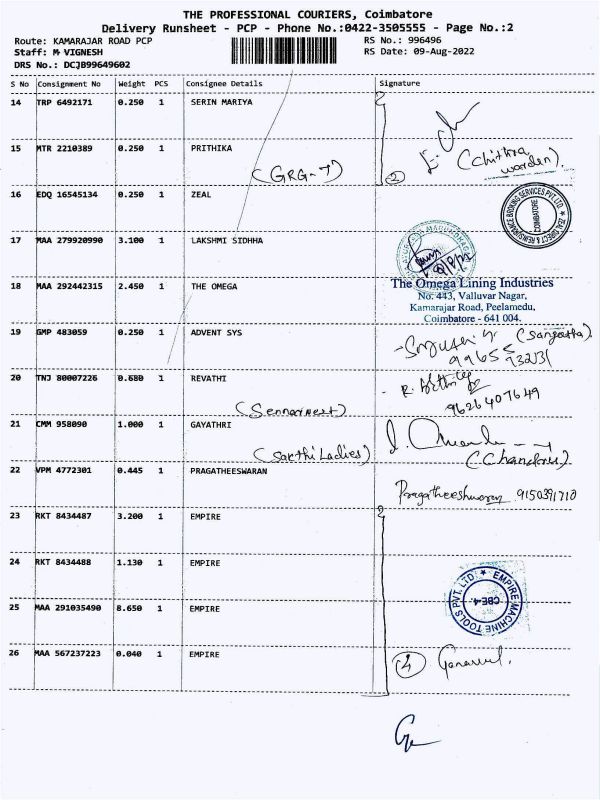 THE PROFESSIONAL COURIERS, Coimbatore
Delivery Runsheet - PCP - Phone No.:0422-3505555 - Page No.:2
Route: KAMARAJAR ROAD PCP RS No.: 996496
Staff: M VIGNESH RS Date: 09-Aug-2022
DRS No.: DCJB99649602
S No Consignment No Weight PCS Consignee Details Signature
14 TRP 6492171 0.250 1 SERIN MARIYA
15 MTR 2210389 0.250 1 PRITHIKA
(Chithra
warden).
(GRG-T) 2
16 EDQ 16545134 0.250 1 ZEAL
ZEAL DIRECT & REINSURANCE BROKING SERVICES PVT. LTD
COIMBATORE
17 MAA 279920990 3.100 1 LAKSHMI SIDHHA
18 MAA 292442315 2.450 1 THE OMEGA
The Omega Lining Industries
No. 443, Valluvar Nagar,
Kamarajar Road, Peelamedu,
Coimbatore - 641 004.
19 GMP 483059 0.250 1 ADVENT SYS
(Sangeetha)
20 TNJ 80007226 0.680 1 REVATHI
9626407649
21 CMM 958090 1.000 1 GAYATHRI
(Sakthi Ladies)
(Chandru)
22 VPM 4772301 0.445 1 PRAGATHEESWARAN
Pragatheeshwaran 9150391710
23 RKT 8434487 3.200 1 EMPIRE
24 RKT 8434488 1.130 1 EMPIRE
EMPIRE MACHINE TOOLS PVT. LTD.
CBE-4
25 MAA 291035490 8.650 1 EMPIRE
26 MAA 567237223 0.040 1 EMPIRE
4